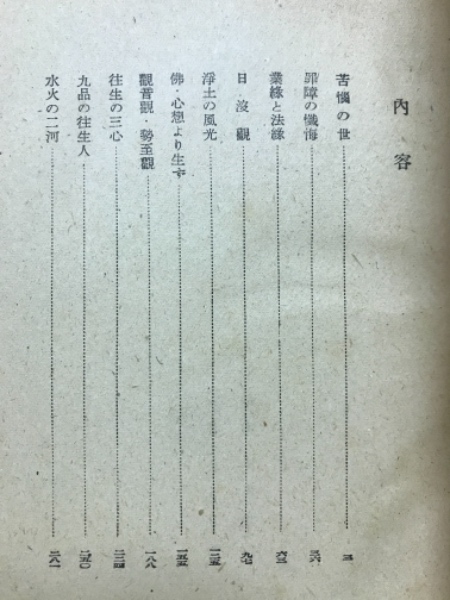 內容
苦惱の世……三
罪障の懺悔……三六
業緣と法緣……六三
日沒觀……九七
淨土の風光……一二五
佛・心想より生ず……一五五
觀音觀・勢至觀……一八八
往生の三心……二三四
九品の往生人……二五〇
水火の二河……二八一